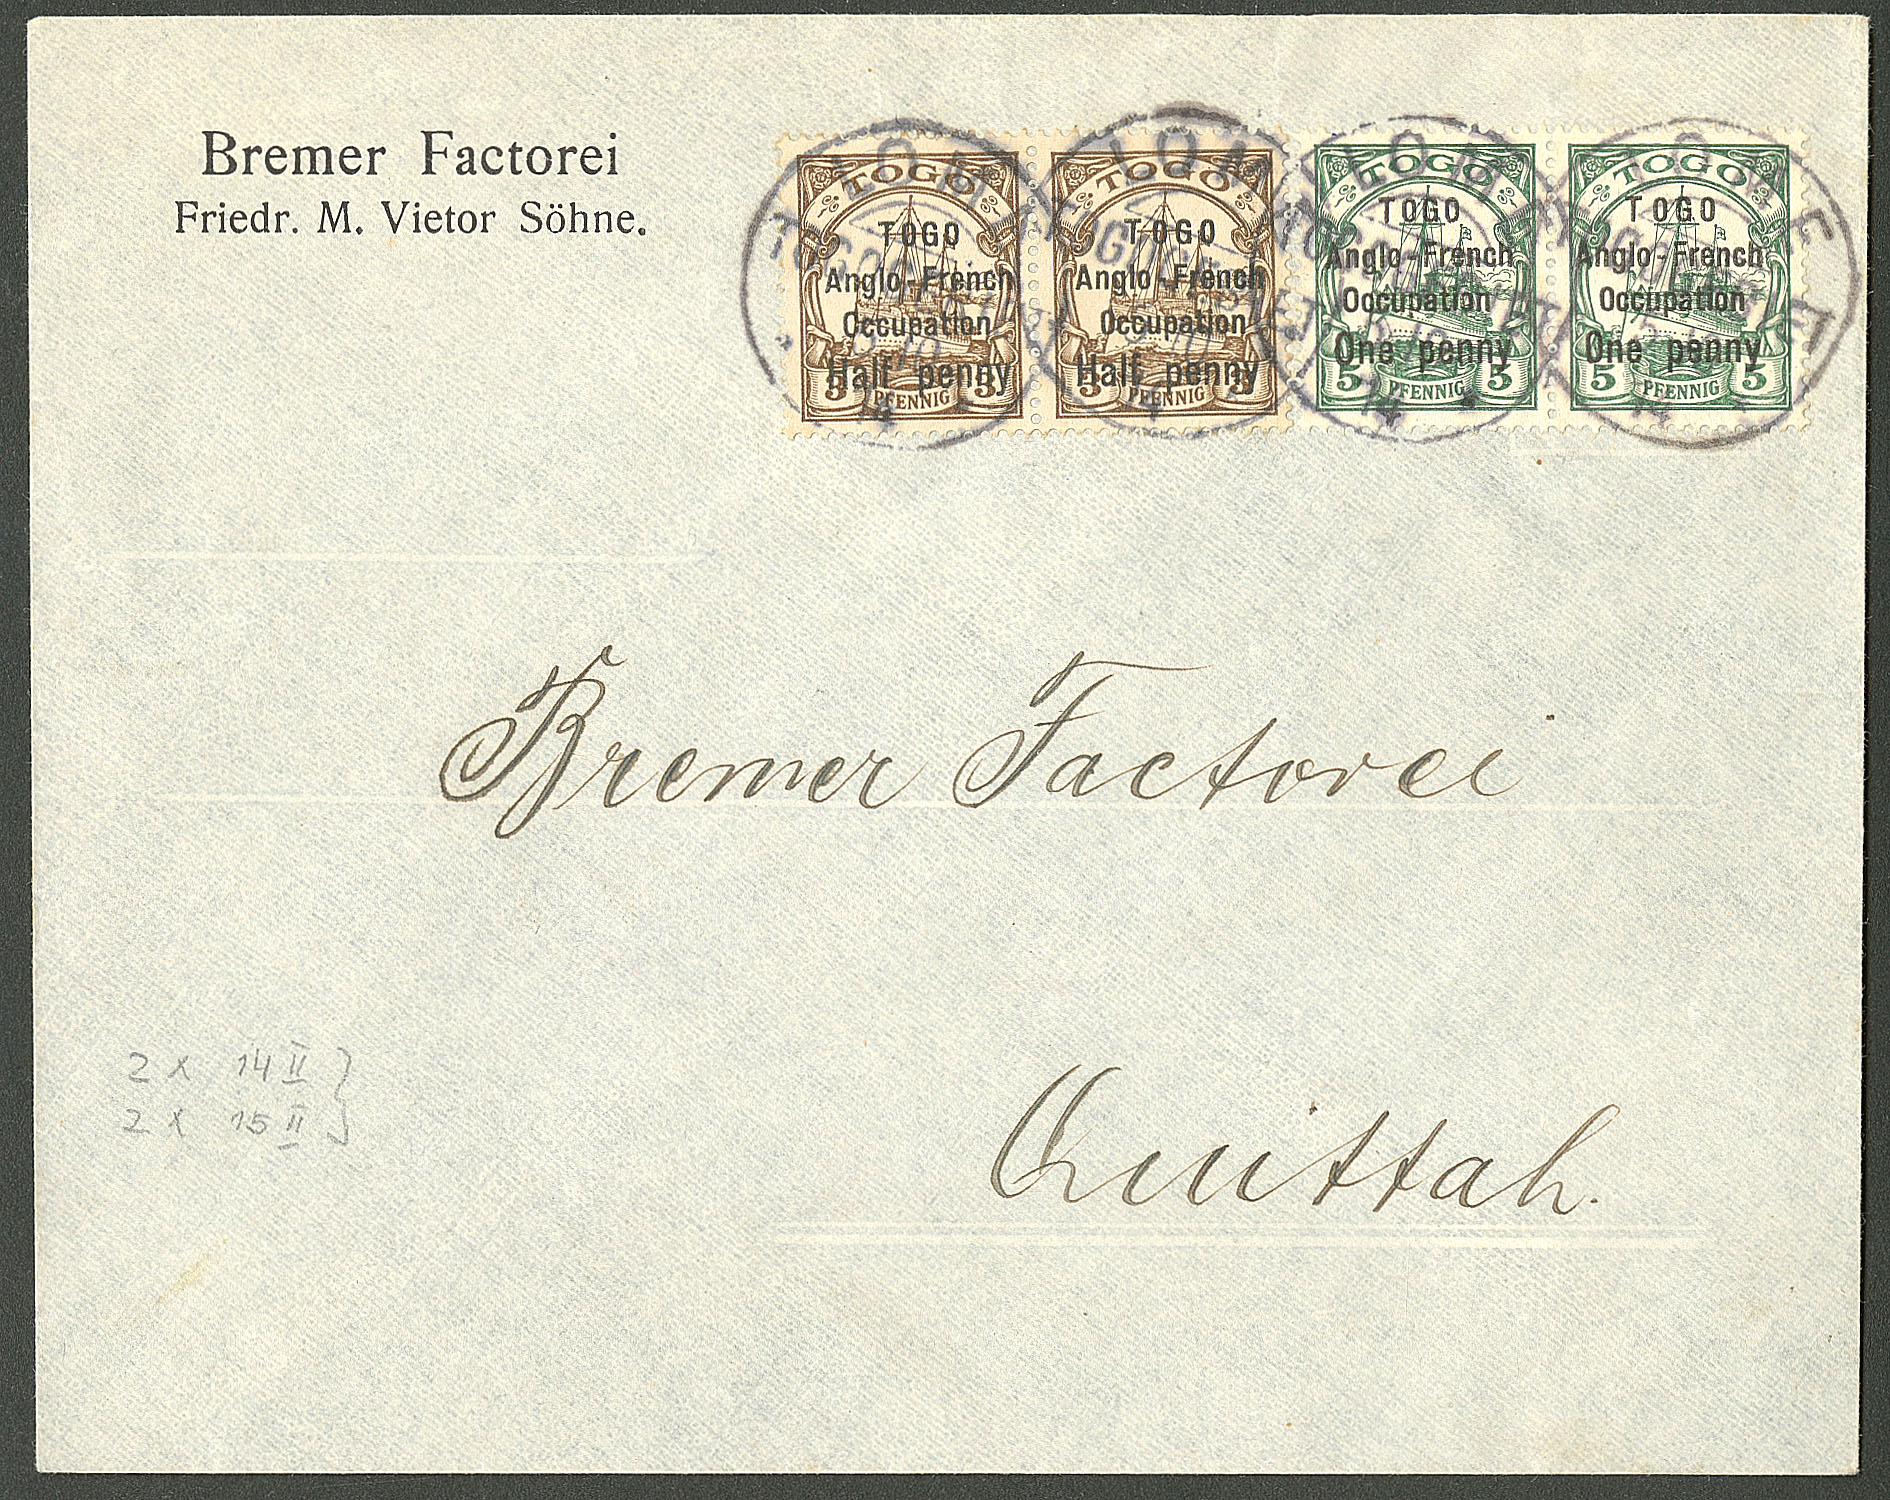 Bremer Factorei
Friedr. M. Vietor Söhne.
TOGO TOGO TOGO TOGO
TOGO TOGO TOGO TOGO
Anglo-French Anglo-French Anglo-French Anglo-French
Occupation Occupation Occupation Occupation
Half penny Half penny One penny One penny
3 PFENNIG 3 3 PFENNIG 3 5 PFENNIG 5 5 PFENNIG 5
Bremer Factorei
2 x 14 II
2 x 15 II
Quittah.